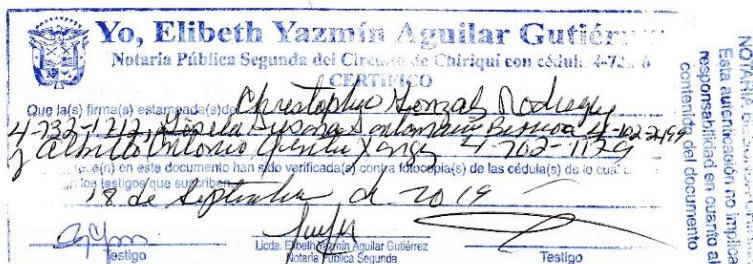 Yo, Elibeth Yazmín Aguilar Gutiérr
Notaria Pública Segunda del Circuito de Chiriquí con cédula 4-72
CERTIFICO
Que la(s) firma(s) estampada(s) de Christopher Gonzalez Rodriguez
4-733-1212, Gisela Susana 4-102-2499
y Antonio 4-702-1129
en este documento han sido verificada(s) contra fotocopia(s) de las cédula(s) de lo cual
los testigos que suscriben,
18 de Septiembre de 2019
Testigo
Licda. Elibeth Yazmín Aguilar Gutiérrez
Notaria Pública Segunda
Testigo
NOTARIA
Esta autenticación no implica
responsabilidad en cuanto al
contenido del documento